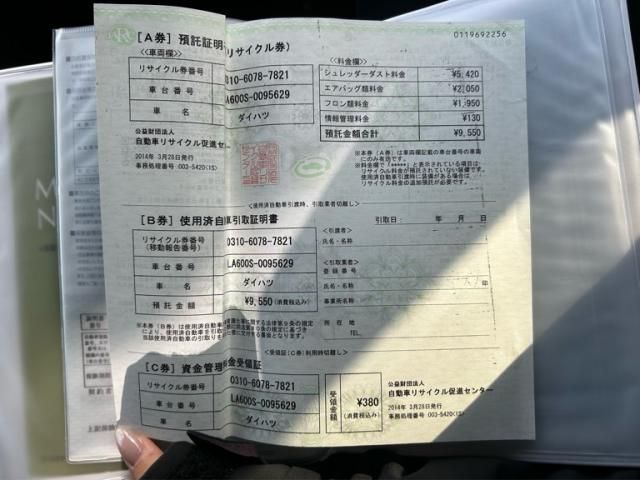 0119692256
[A券] 預託証明 リサイクル券)
<<車両欄>>
リサイクル券番号 0310-6078-7821
車台番号 LA600S-0095629
車名 ダイハツ
<<料金欄>>
シュレッダーダスト料金 ¥5,420
エアバッグ類料金 ¥2,050
フロン類料金 ¥1,950
情報管理料金 ¥130
預託金額合計 ¥9,550
公益財団法人
自動車リサイクル促進セン
2014年 3月28日発行
事務処理番号 :003-5420(1S)
※本券(A券)は車両欄記載の車台番号の車両
にのみ有効です。
<使用済自動車引渡時、引取業者切離し>
[B券] 使用済自動車引取証明書
引取日: 年 月 日
リサイクル券番号
(移動報告番号) 0310-6078-7821
車台番号 LA600S-0095629
車名 ダイハツ
預託金額 ¥9,550(消費税込み)
<引渡者>
氏名・名称
<引取業者>
登録番号
氏名・名称
事業所名称
所在地
TEL.
<受領証(C券)利用時切離し>
[C券] 資金管理料金受領証
リサイクル券番号 0310-6078-7821
車台番号 LA600S-0095629
車名 ダイハツ
受領金額 ¥380
(消費税込み)
公益財団法人
自動車リサイクル促進センター
2014年 3月28日発行
事務処理番号 :003-5420(1S)